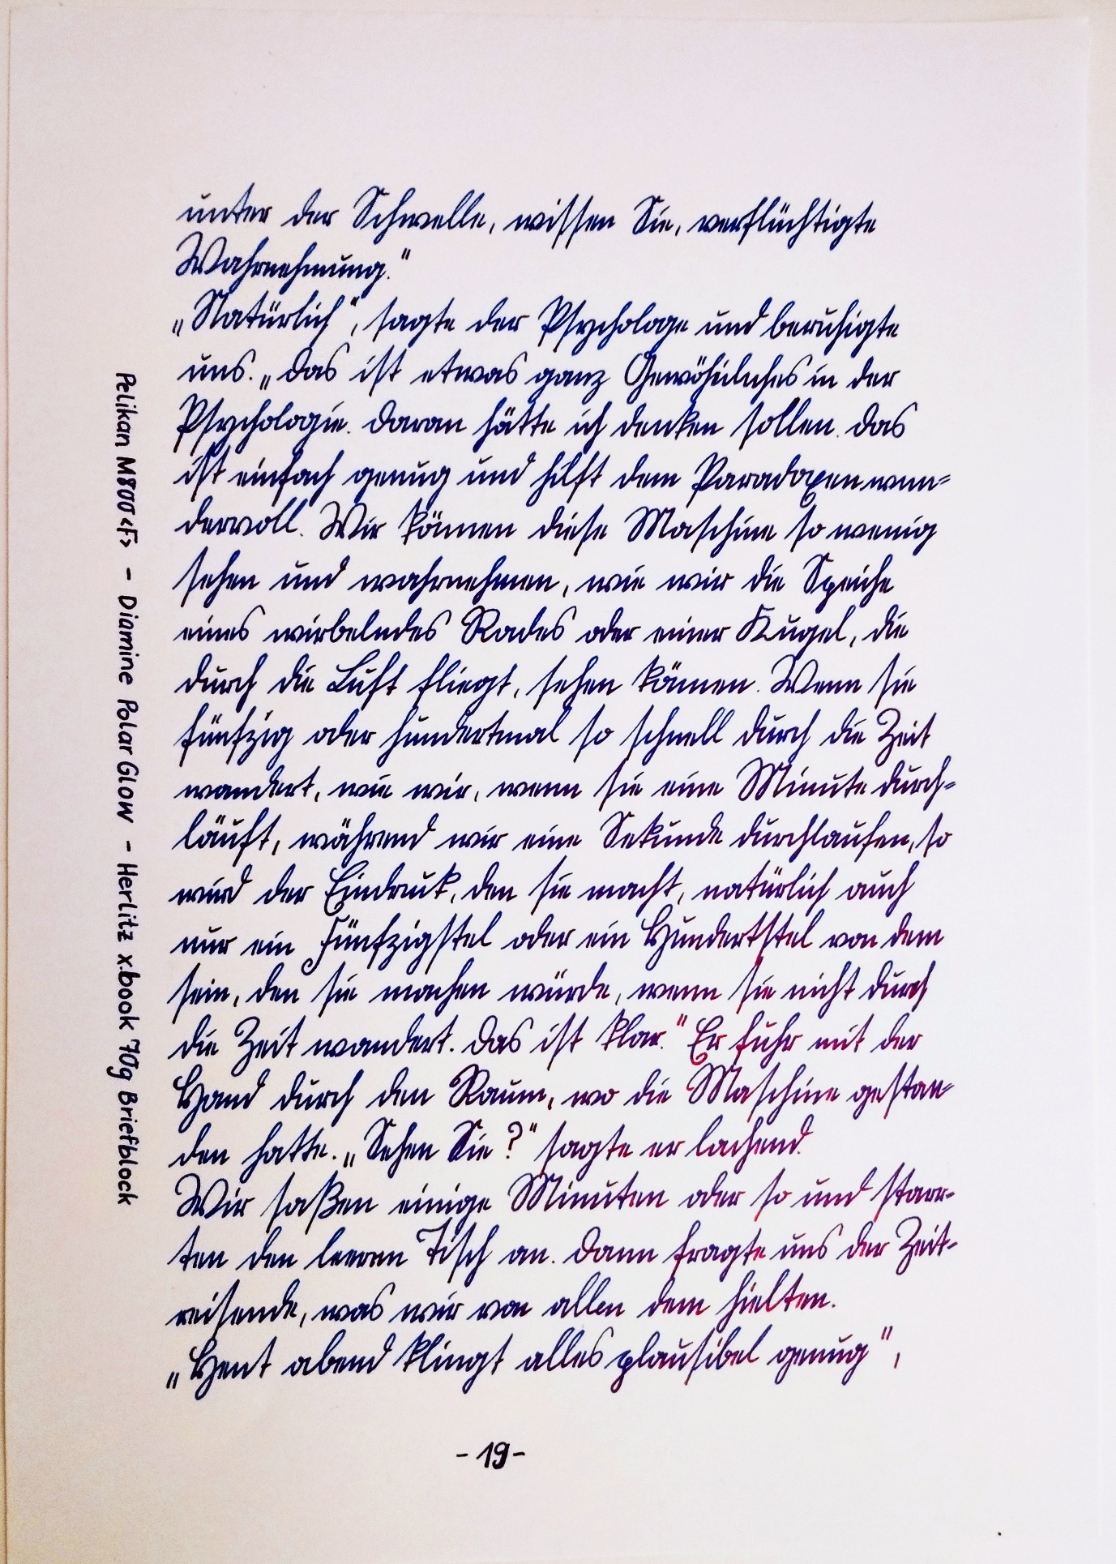 unter der Schwelle, wissen Sie, verflüchtigte
Wahrnehmung."
„Natürlich", sagte der Psychologe und beruhigte
uns. „Das ist etwas ganz Gewöhnliches in der
Psychologie. Daran hätte ich denken sollen. Das
ist einfach genug und hilft dem Paradoxen wun-
dervoll. Wir können diese Maschine so wenig
sehen und wahrnehmen, wie wir die Speiche
eines wirbelndes Rades oder einer Kugel, die
durch die Luft fliegt, sehen können. Wenn sie
fünfzig oder hundertmal so schnell durch die Zeit
wandert, wie wir, wenn sie eine Minute durch-
läuft, während wir eine Sekunde durchlaufen, so
wird der Eindruck, den sie macht, natürlich auch
nur ein Fünfzigstel oder ein Hundertstel von dem
sein, den sie machen würde, wenn sie nicht durch
die Zeit wandert. Das ist klar." Er fuhr mit der
Hand durch den Raum, wo die Maschine gestan-
den hatte. „Sehen Sie?" sagte er lachend.
Wir saßen einige Minuten oder so und starr-
ten den leeren Tisch an. Dann fragte uns der Zeit-
reisende, was wir von allen dem hielten.
„Heut abend klingt alles plausibel genug",
- 19 -
Pelikan M800 <F> - Diamine Polar Glow - Herlitz x.book 70g Briefblock